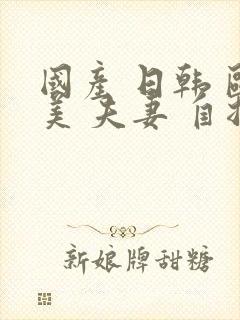 國產 日韓 歐
美 夫妻 自拍
新娘牌甜糖